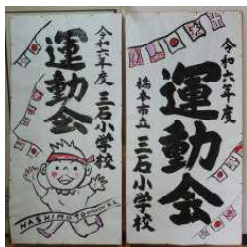 令和六年度
運動会
三石小学校
HASHIMOTO
令和六年度
運動会
橋本市立
三石小学校